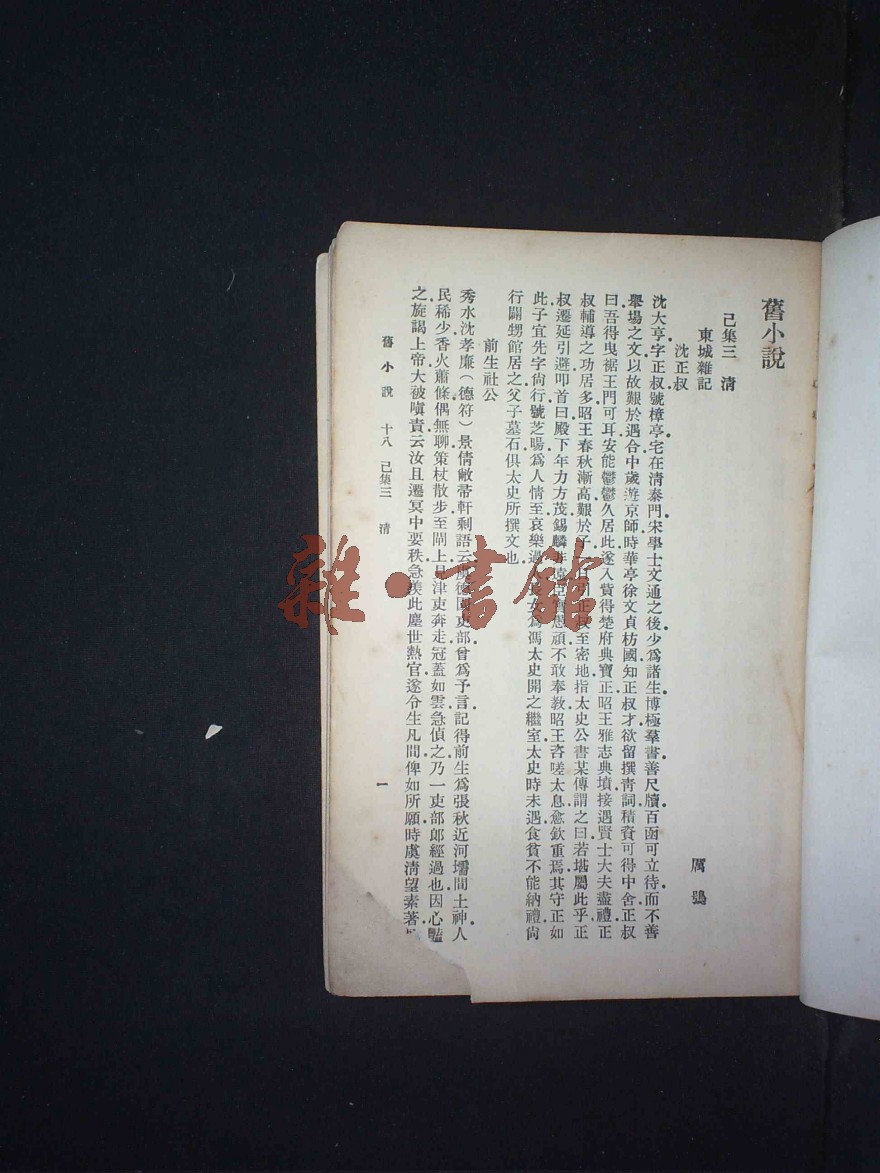 舊小說
己集三 清
東城雜記 厲鶚
沈正叔
沈大亨字正叔號樟亭宅在清泰門宋學士文通之後少爲諸生博極羣書善尺牘百函可立待而不善
舉場之文以故艱於遇合中歲遊京師時華亭徐文貞枋國知正叔才欲留撰靑詞積資可得中舍正叔
曰吾得曳裾王門可耳安能鬱鬱久居此遂入貲得楚府典寶正昭王雅志典墳接遇賢士大夫盡禮正
叔輔導之功居多昭王春秋漸高艱於子 引正叔至密地指太史公書某傳謂之曰若堪屬此乎正
叔遷延引避叩首曰殿下年力方茂錫麟非遠臣實愚頑不敢奉敎昭王咨嗟太息愈欽重焉其守正如
此子宜先字尙行號芝暘爲人情至哀樂過人長女爲馮太史開之繼室太史時未遇食貧不能納禮尙
行闢甥館居之父子墓石俱太史所撰文也
前生社公
秀水沈孝廉(德符)景倩敝帚軒剩語云虞德園吏部曾爲予言記得前生爲張秋近河壖間土神人
民稀少香火蕭條偶無聊策杖散步至閘上見津吏奔走冠蓋如雲急偵之乃一吏部郞經過也因心豔
之旋謁上帝大被嗔責云汝且遷冥中要秩急羨此塵世熱官遂令生凡間俾如所願時虞清望素著
舊小說 十八 己集三 清 一
雜·書館